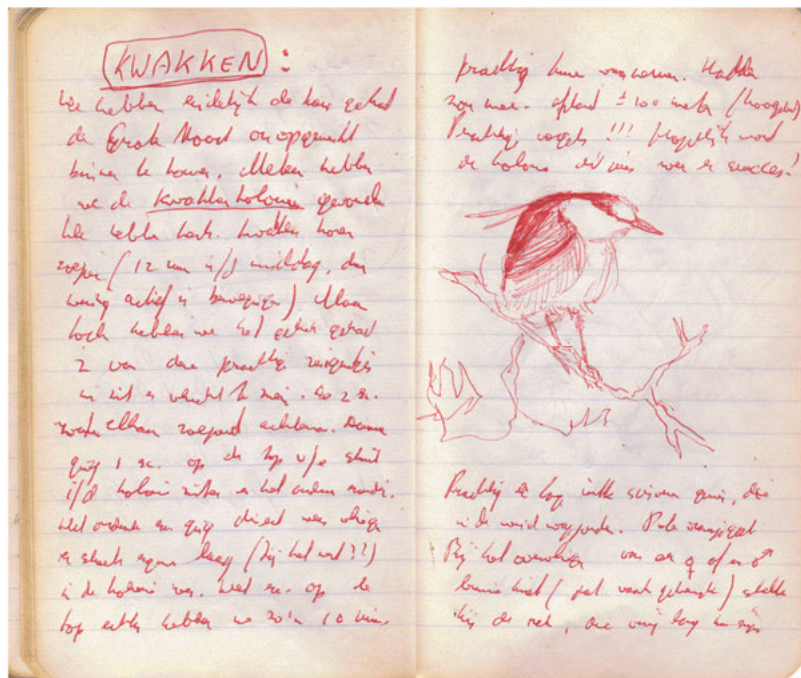 KWAKKEN:
We hebben eindelijk de kans gehad
de Grote Noord onopgemerkt
binnen te komen. Meteen hebben
we de kwakkenkolonie gevonden
We hebben kwakken horen
roepen (12 uur i/d middag, dus
weinig actief in bewegingen) Maar
toch hebben we het geluk gehad
2 van deze prachtige reigertjes
in zit en vlucht te zien. Zo 2 ex.
elkaar roepend achterna. Daarna
ging 1 ex. op de top v/e struik
i/d kolonie zitten en het andere
Het andere ex. ging direct weer vliegen
en streek ergens laag (bij het nest??)
in de kolonie neer. Het ex. op de
top echter hebben we zo'n 10 min.
prachtig kunnen waarnemen. Hadden
afstand ± 100 meter (hoogstens)
Prachtige vogels!!! Hopelijk word
de kolonie dit jaar weer een succes!
Prachtig de lange witte die
in de wind
Bij het overvliegen van een ♀ of een ♂
bruine kiek (niet goed) strekte
hij de nek, die vrij lang kan zijn